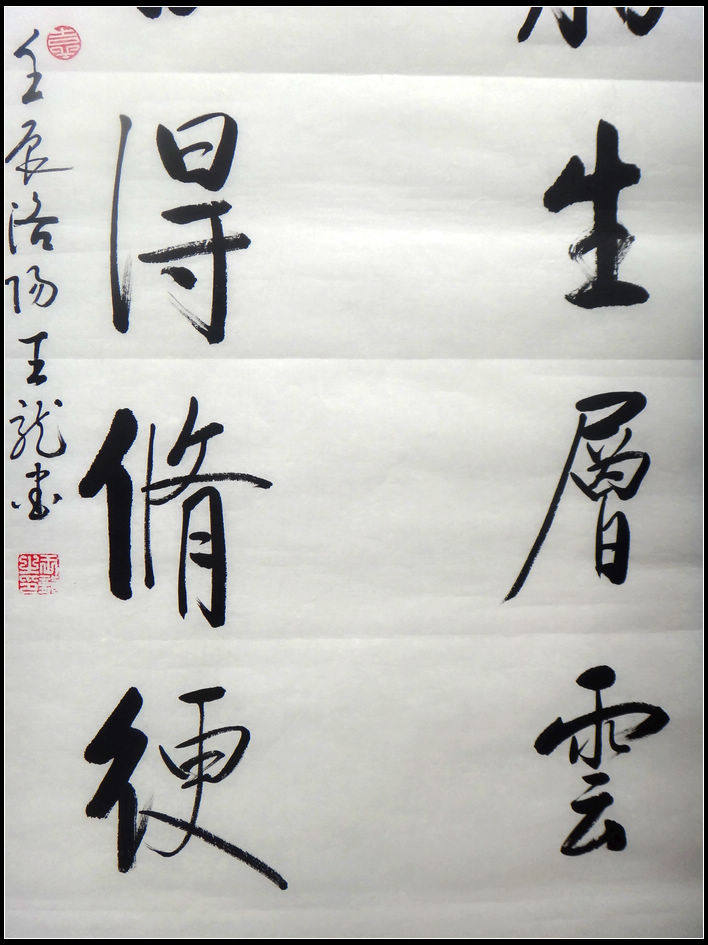 生層雲
得脩綆
壬辰洛陽王龍書